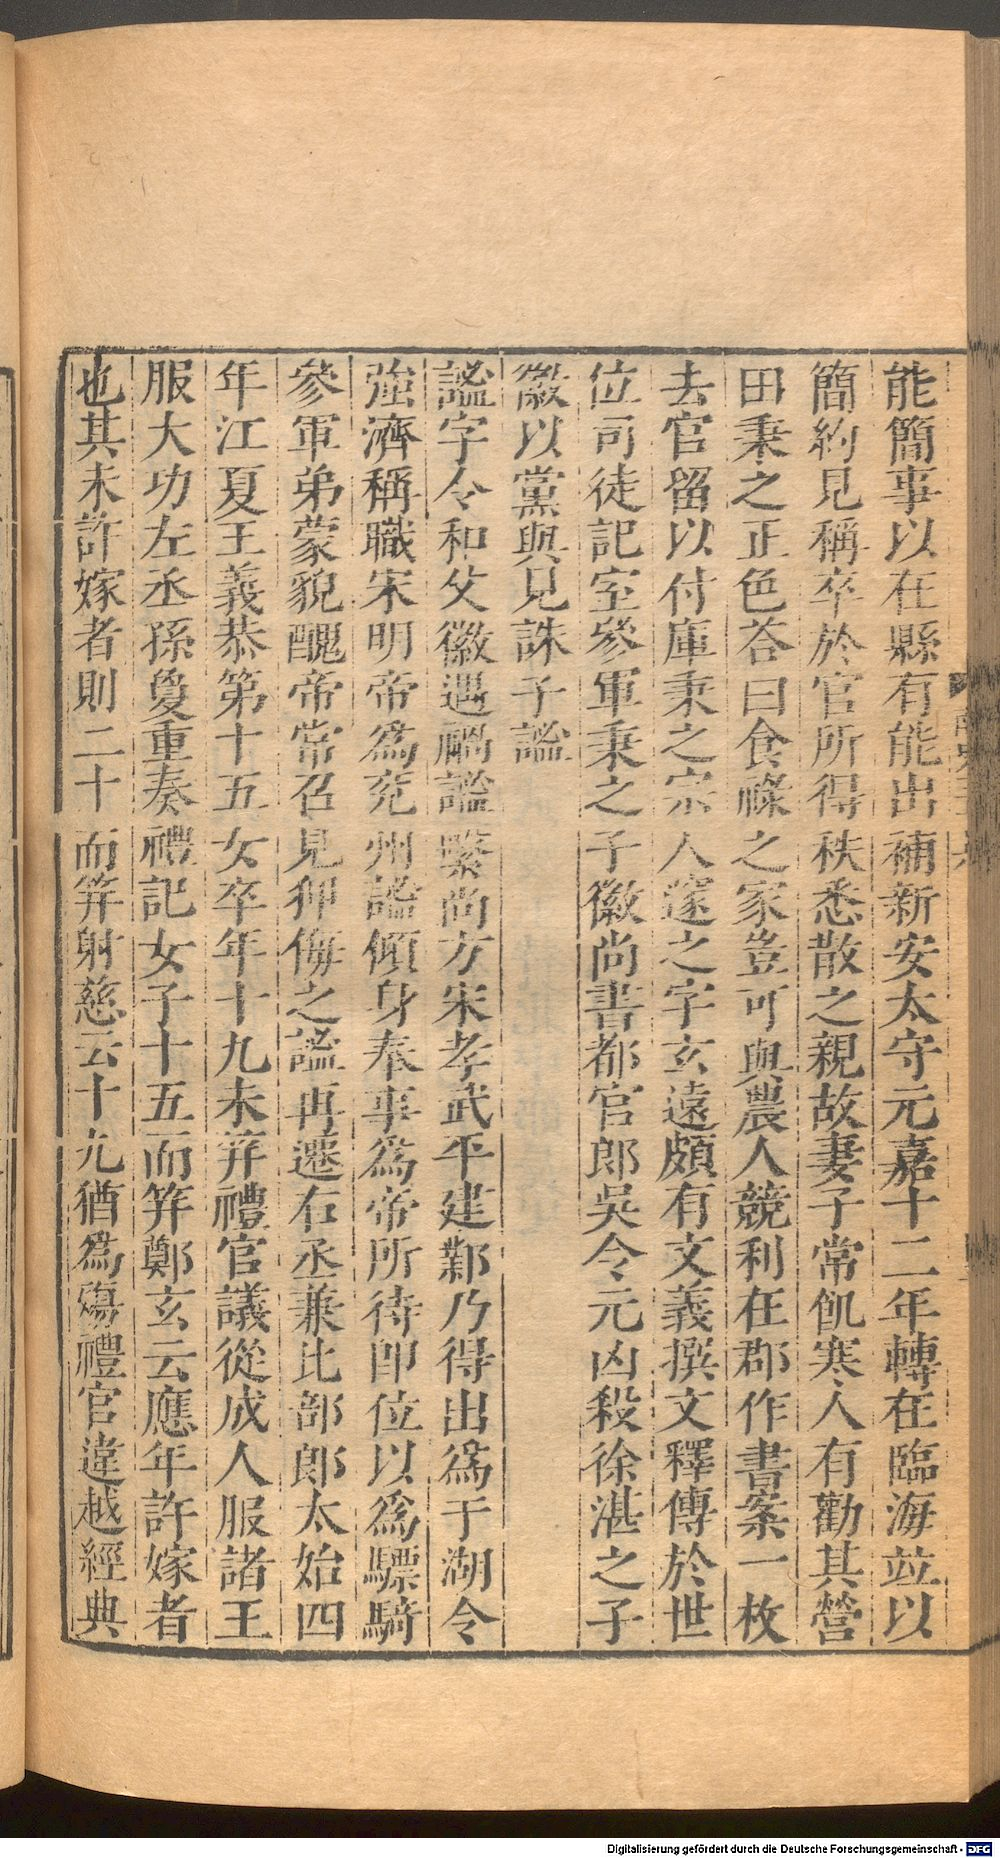 能簡事以在縣有能出補新安太守元嘉十二年轉在臨海竝以
簡約見稱卒於官所得秩悉散之親故妻子常飢寒人有勸其營
田秉之正色荅曰食祿之家豈可與農人競利在郡作書案一枚
去官留以付庫秉之宗人邃之字玄遠頗有文義撰文釋傳於世
位司徒記室參軍秉之子徽尚書都官郎吳令元凶殺徐湛之子
徽以黨與見誅子謐
謐字令和父徽遇禍謐繫尚方宋孝武平建鄴乃得出爲于湖令
強濟稱職宋明帝爲兗州謐傾身奉事爲帝所待即位以爲驃騎
參軍弟蒙貌醜帝常召見狎侮之謐再遷右丞兼比部郎太始四
年江夏王義恭第十五女卒年十九未笄禮官議從成人服諸王
服大功左丞孫敻重奏禮記女子十五而笄鄭玄云應年許嫁者
也其未許嫁者則二十而笄射慈云十九猶爲殤禮官違越經典
Digitalisierung gefördert durch die Deutsche Forschungsgemeinschaft - DFG